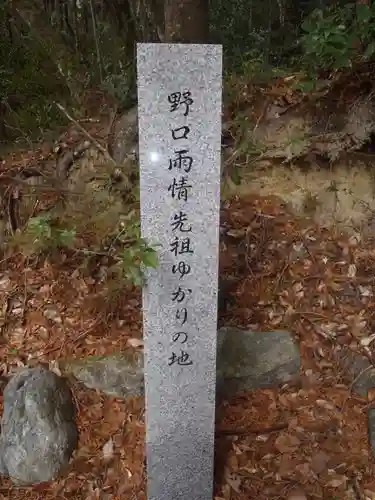 野口雨情先祖ゆかりの地